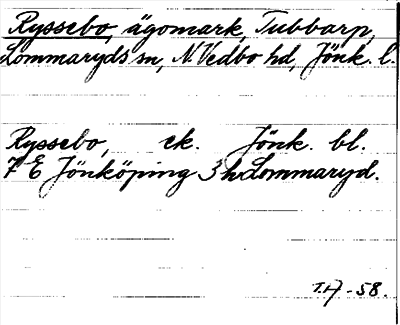 Ryssebo, ägomark, Tubbarp,
Lommaryds sn, N. Vedbo hd, Jönk. l.
Ryssebo, ek. Jönk. bl.
7 E Jönköping 3 h Lommaryd.
T.H-58.